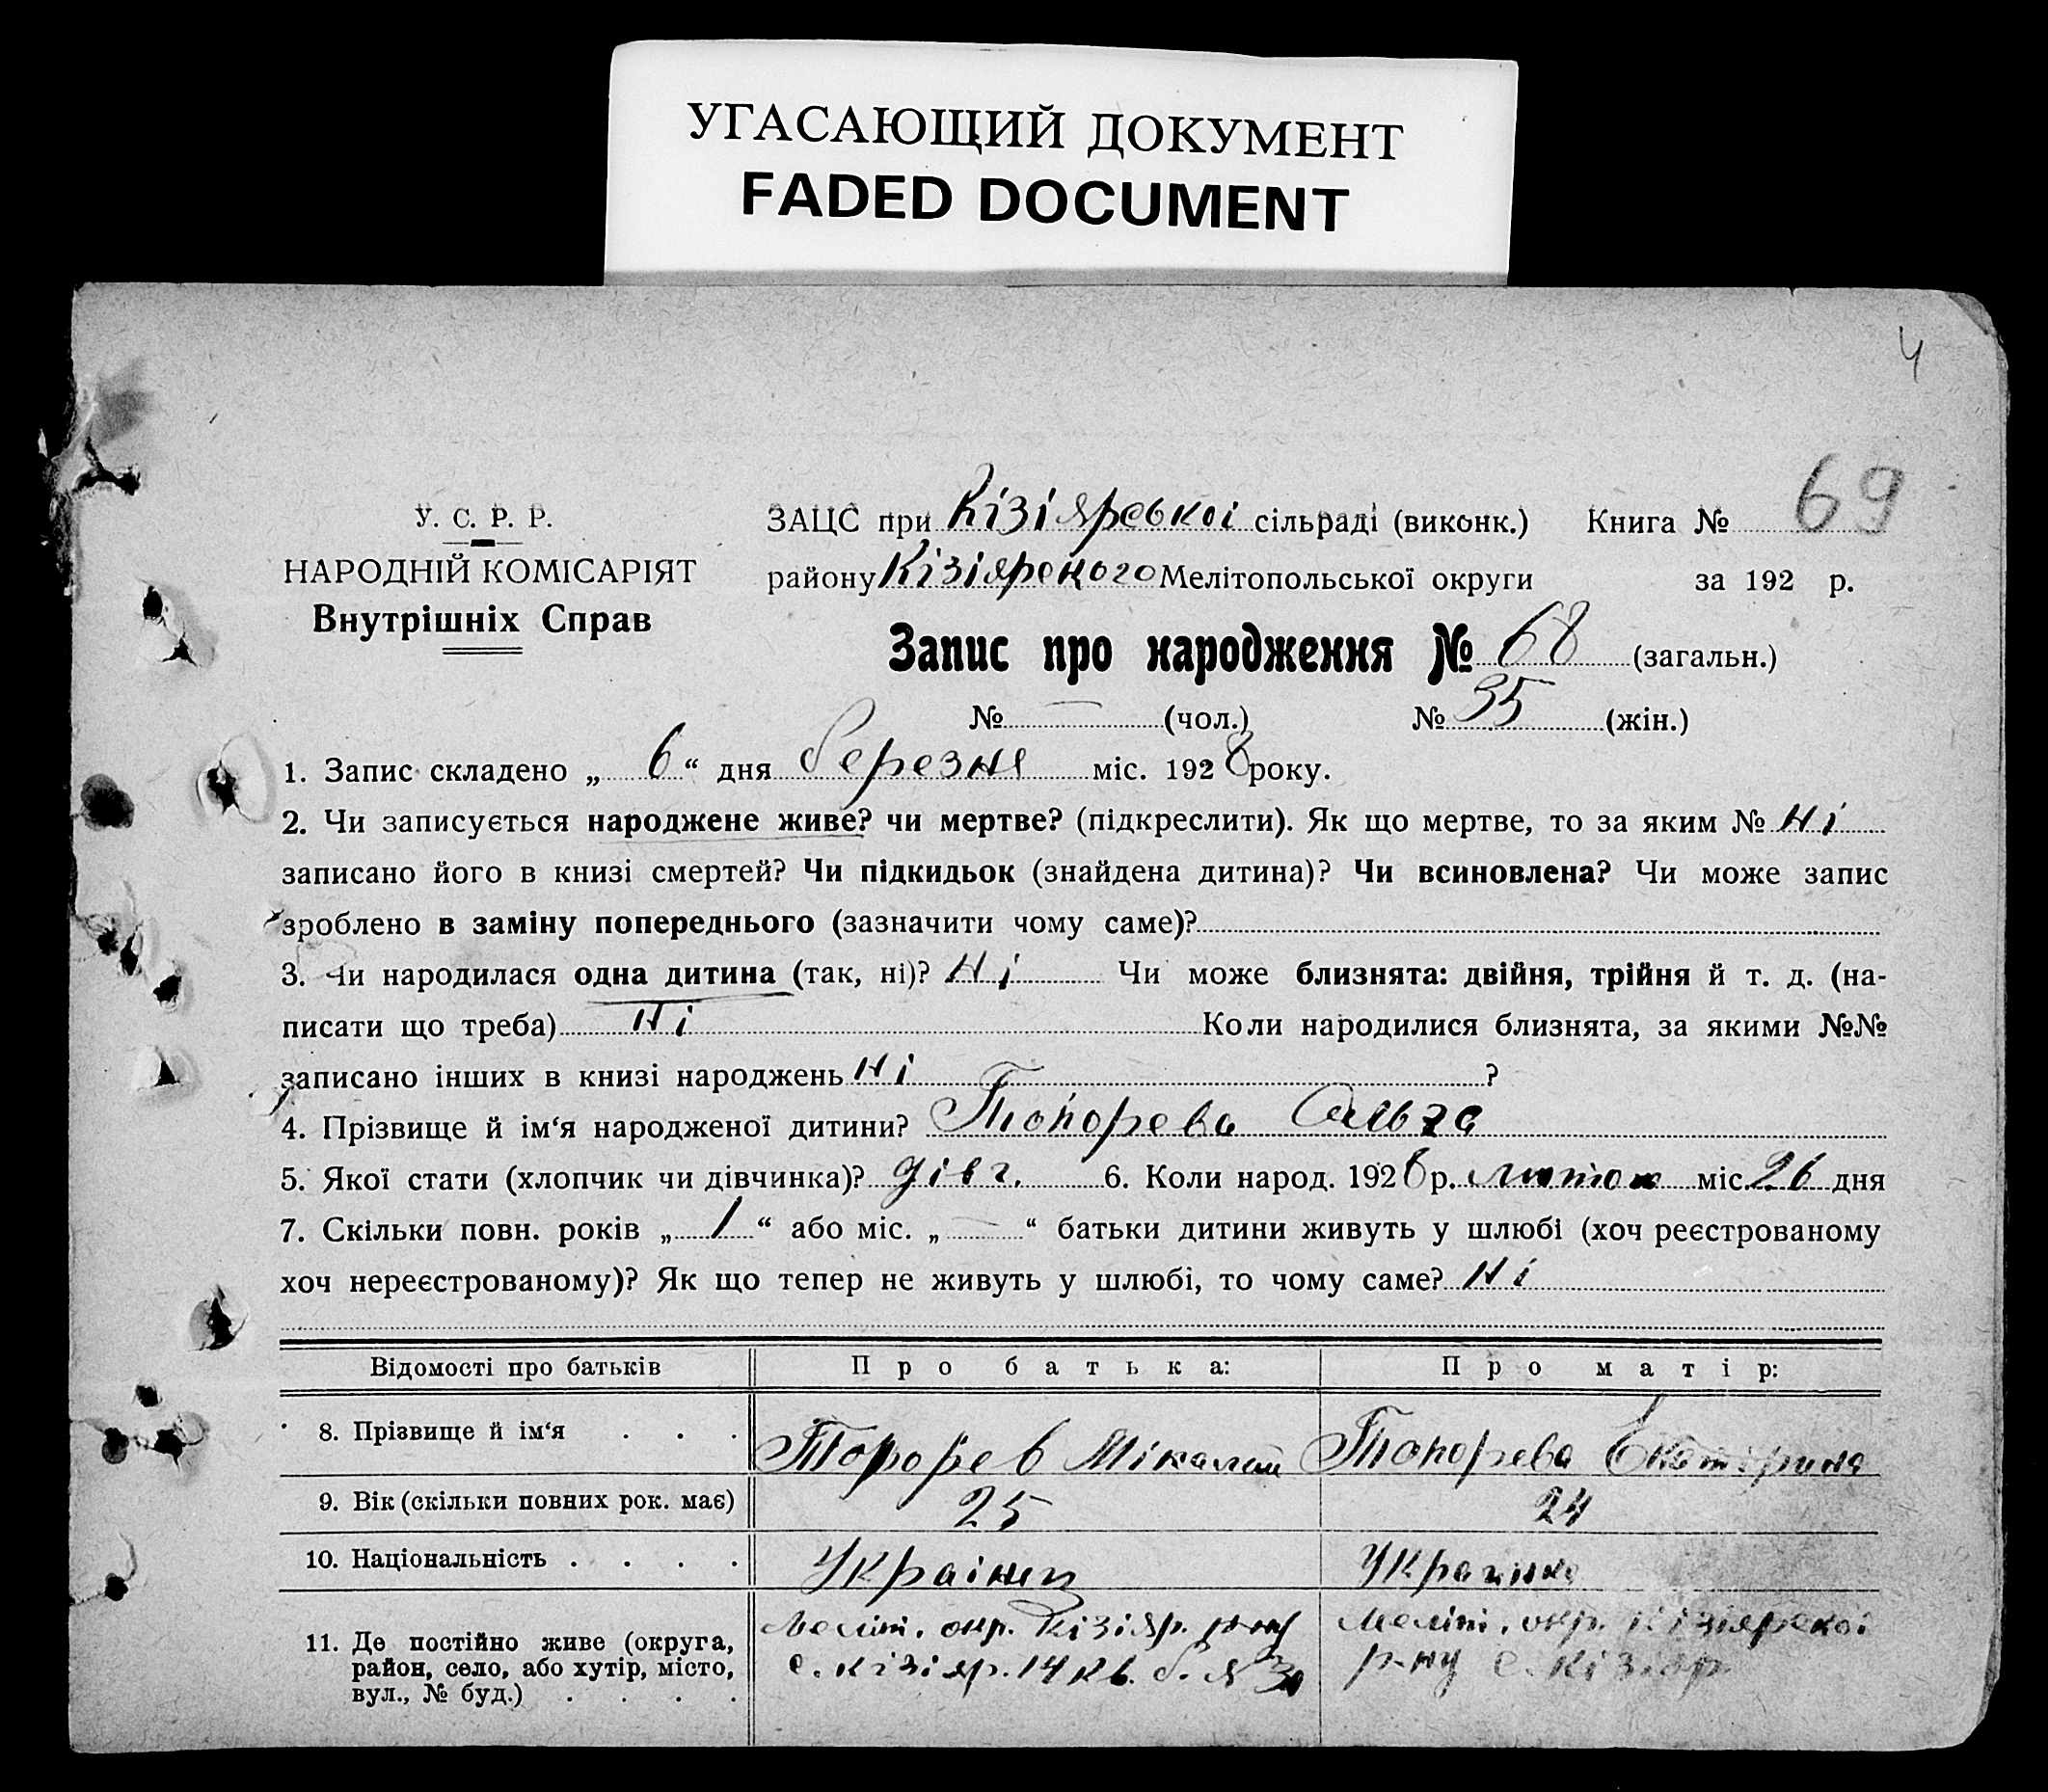 УГАСАЮЩИЙ ДОКУМЕНТ
FADED DOCUMENT
4
69
У. С. Р. Р.
НАРОДНІЙ КОМІСАРІЯТ
Внутрішніх Справ
ЗАЦС при Кізіярської сільраді (виконк.) Книга №
району Кізіярского Мелітопольської округи за 192 р.
Запис про народження № 68 (загальн.)
№ — (чол.) № 35 (жін.)
1. Запис складено „ 6 “ дня березня міс. 1928 року.
2. Чи записується народжене живе? чи мертве? (підкреслити). Як що мертве, то за яким № ні
записано його в книзі смертей? Чи підкидьок (знайдена дитина)? Чи всиновлена? Чи може запис
зроблено в заміну попереднього (зазначити чому саме)?
3. Чи народилася одна дитина (так, ні)? Ні Чи може близнята: двійня, трійня й т. д. (на-
писати що треба) Ні Коли народилися близнята, за якими №№
записано інших в книзі народжень ні ?
4. Прізвище й ім‘я народженої дитини? Топорева Ольга
5. Якої стати (хлопчик чи дівчинка)? дівч. 6. Коли народ. 1928 р. міс. 26 дня
7. Скільки повн. років „ 1 “ або міс. „ — “ батьки дитини живуть у шлюбі (хоч реєстрованому
хоч нереєстрованому)? Як що тепер не живуть у шлюбі, то чому саме? Ні
Відомості про батьків Про батька: Про матір:
8. Прізвище й ім‘я . . . Топорев Міколай Топорева Екатірина
9. Вік (скільки повних рок. має) 25 24
10. Національність . . . . Українец Украинка
11. Де постійно живе (округа, Меліт. окр. Кізіяр. р-ну Меліт. окр. Кізіярскоі
район, село, або хутір, місто, с. Кізіяр. 14 кв. б. № р-ну с. Кізіяр
вул., № буд.) . . . .